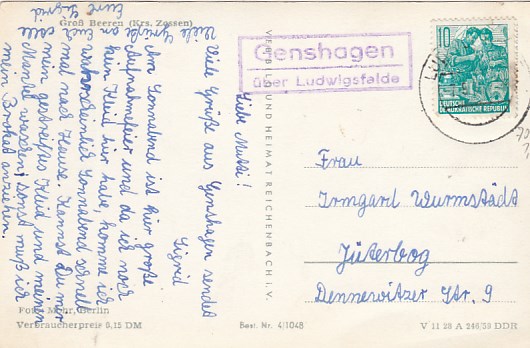 Groß Beeren (Krs. Zossen)
Genshagen
über Ludwigsfelde
10
DEUTSCHE
DEMOKRATISCHE REPUBLIK
Liebe Mutti!
Viele Grüße aus Genshagen sendet
Sigrid
Am Sonnabend ist hier große
Aufnahmefeier und da ich noch
kein Kleid hier habe, komme ich
wahrscheinlich Sonnabend schnell
mal nach Hause. Kannst Du mir
mein gestreiftes Kleid und meinen
waschen, sonst muß ich
mein anziehen.
Viele Grüße an Euch alle
Eure Sigrid
Frau
Irmgard Wurmstädt
Jüterbog
Dennewitzer Str. 9
VERB BILD UND HEIMAT REICHENBACH I. V.
Foto: Mohr, Berlin
Verbraucherpreis 0,15 DM
Best. Nr. 4/1048
V 11 28 A 248/59 DDR